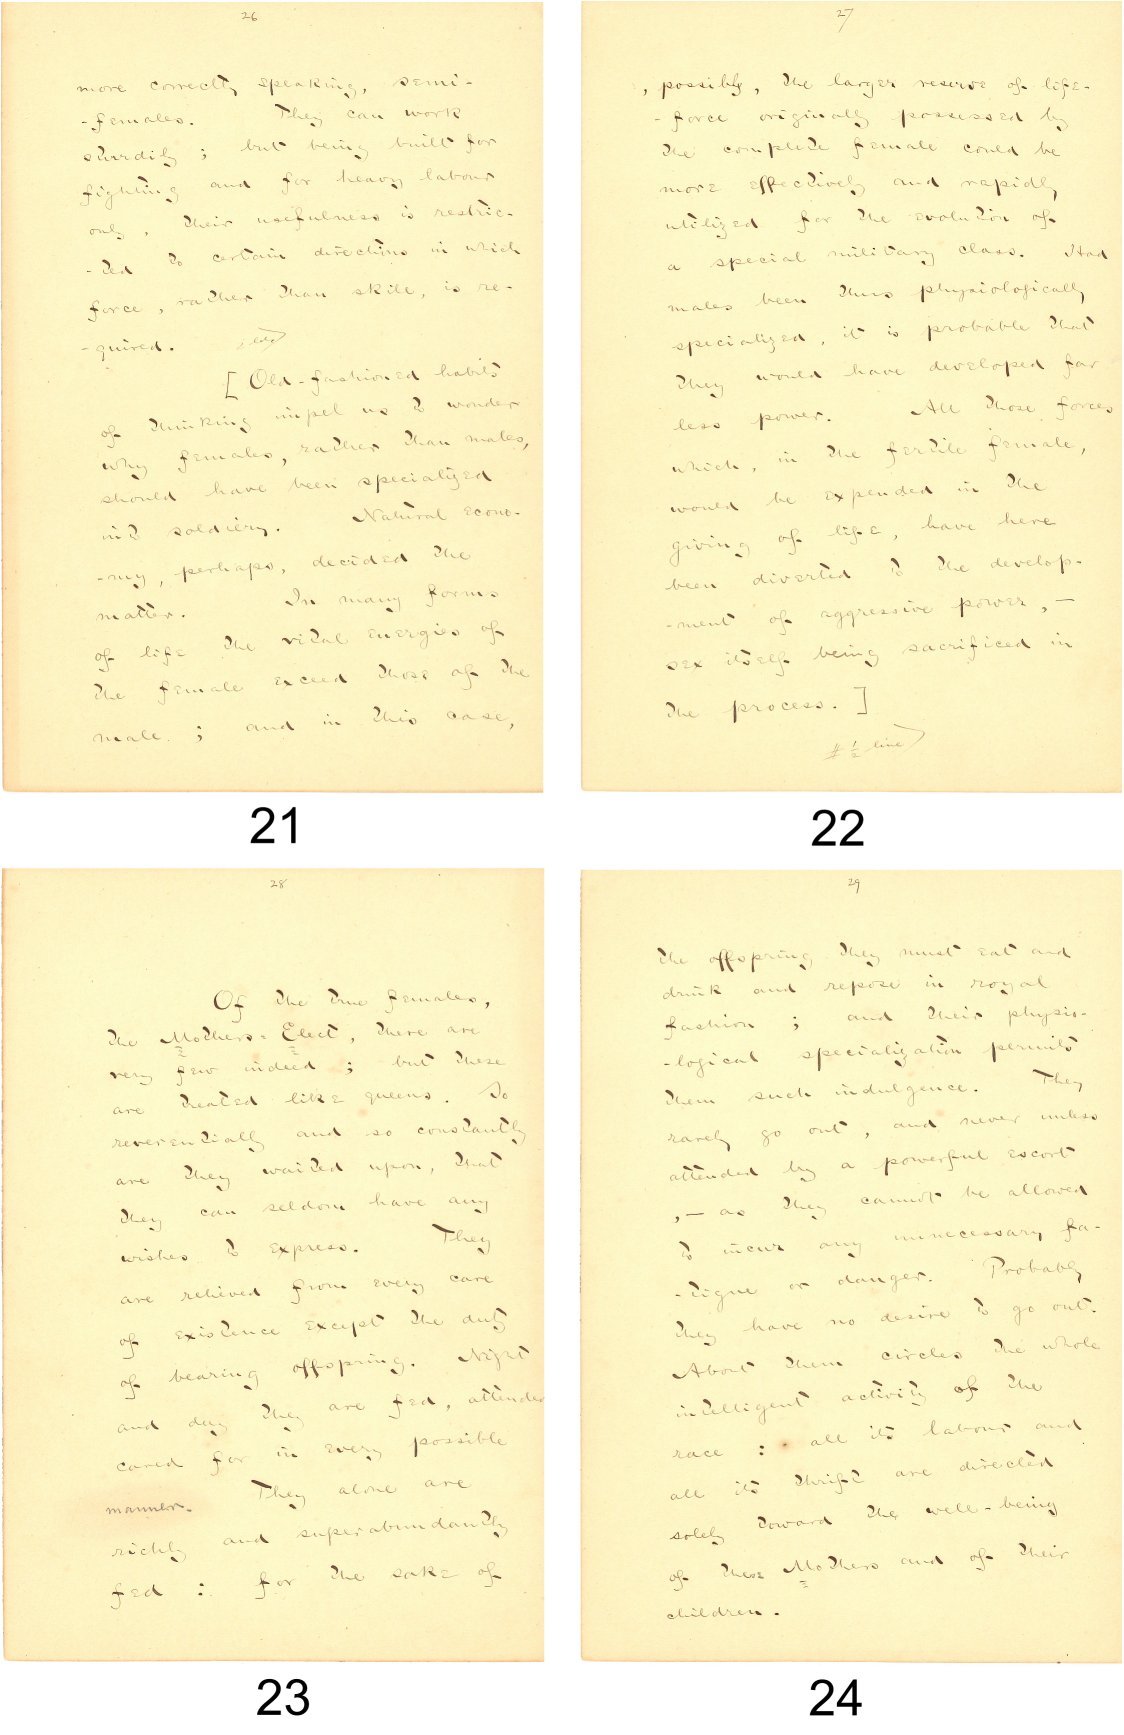 26
more correctly speaking, semi-
-females. They can work
sturdily ; but being built for
fighting and for heavy labour
only, their usefulness is restric-
-ted to certain directions in which
force, rather than skill, is re-
-quired.
[ Old-fashioned habits
of thinking impel us to wonder
why females, rather than males,
should have been specialized
into soldiery. Natural econo-
-my, perhaps, decided the
matter. In many forms
of life the vital energies of
the female exceed those of the
male ; and in this case,
21
27
, possibly, the larger reserve of life-
-force originally possessed by
the complete female could be
more effectively and rapidly
utilized for the evolution of
a special military class. Had
males been thus physiologically
specialized, it is probable that
they would have developed far
less power. All those forces
which, in the fertile female,
would be expended in the
giving of life, have here
been diverted to the develop-
-ment of aggressive power, —
sex itself being sacrificed in
the process. ]
# 1/2 line
22
28
Of the true females,
the Mothers=Elect, there are
very few indeed ; but these
are treated like queens. So
reverentially and so constantly
are they waited upon, that
they can seldom have any
wishes to express. They
are relieved from every care
of existence except the duty
of bearing offspring. Night
and day they are fed, attended
cared for in every possible
manner. They alone are
richly and superabundantly
fed : for the sake of
23
29
the offspring they must eat and
drink and repose in royal
fashion ; and their physio-
-logical specialization permits
them such indulgence. They
rarely go out, and never unless
attended by a powerful escort
, — as they cannot be allowed
to incur any unnecessary fa-
-tigue or danger. Probably
they have no desire to go out.
About them circles the whole
intelligent activity of the
race : all its labour and
all its thrift are directed
solely toward the well-being
of these Mothers and of their
children.
24